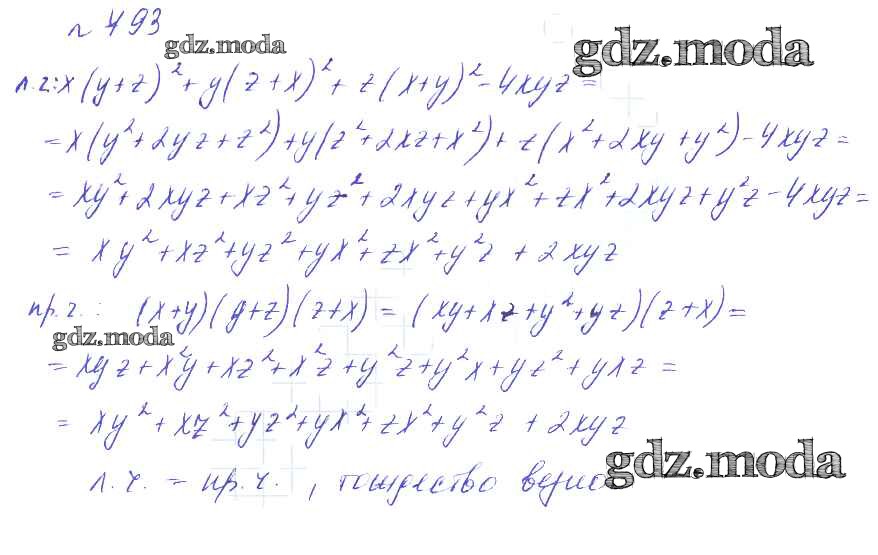 № 493
gdz.moda
gdz.moda
л.г: x(y+z)²+y(z+x)²+z(x+y)²-4xyz=
=x(y²+2yz+z²)+y(z²+2xz+x²)+z(x²+2xy+y²)-4xyz=
=xy²+2xyz+xz²+yz²+2xyz+yx²+zx²+2xyz+y²z-4xyz=
= xy²+xz²+yz²+yx²+zx²+y²z+2xyz
пр.г.: (x+y)(y+z)(z+x)=(xy+xz+y²+yz)(z+x)=
gdz.moda
=xyz+x²y+xz²+x²z+y²z+y²x+yz²+yxz=
= xy²+xz²+yz²+yx²+zx²+y²z+2xyz
л.ч. = пр.ч., тождество верно
gdz.moda